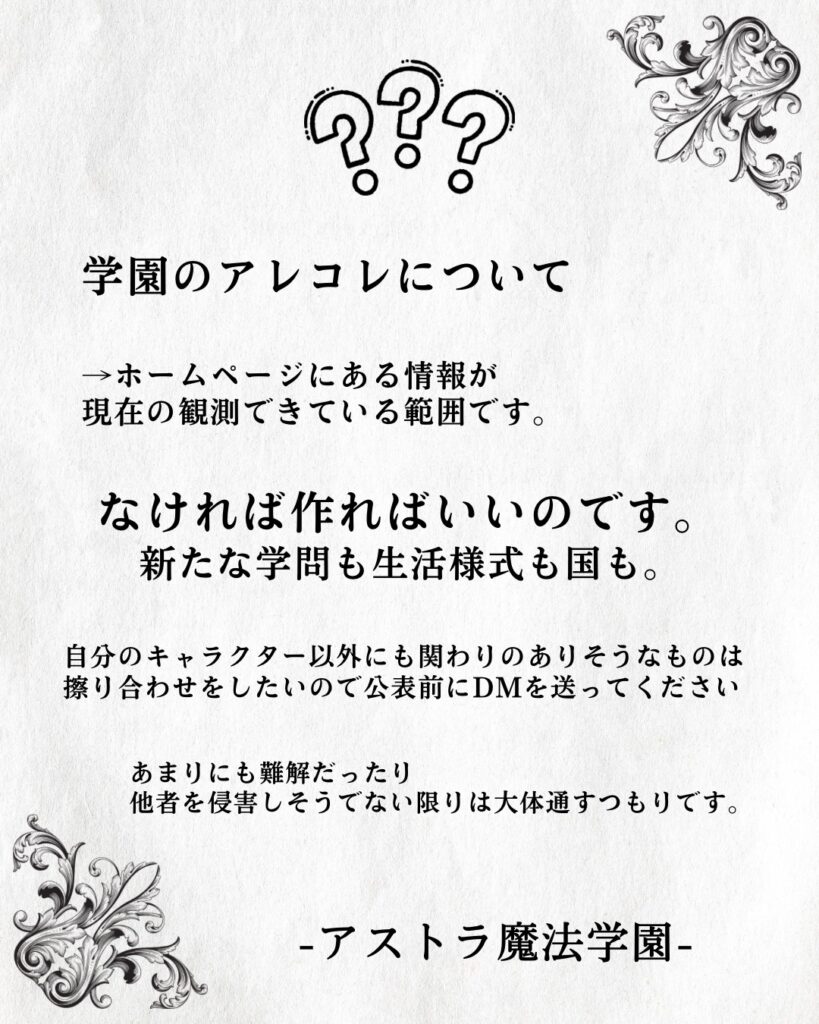 ???
学園のアレコレについて
→ホームページにある情報が
現在の観測できている範囲です。
なければ作ればいいのです。
新たな学問も生活様式も国も。
自分のキャラクター以外にも関わりのありそうなものは
擦り合わせをしたいので公表前にDMを送ってください
あまりにも難解だったり
他者を侵害しそうでない限りは大体通すつもりです。
-アストラ魔法学園-